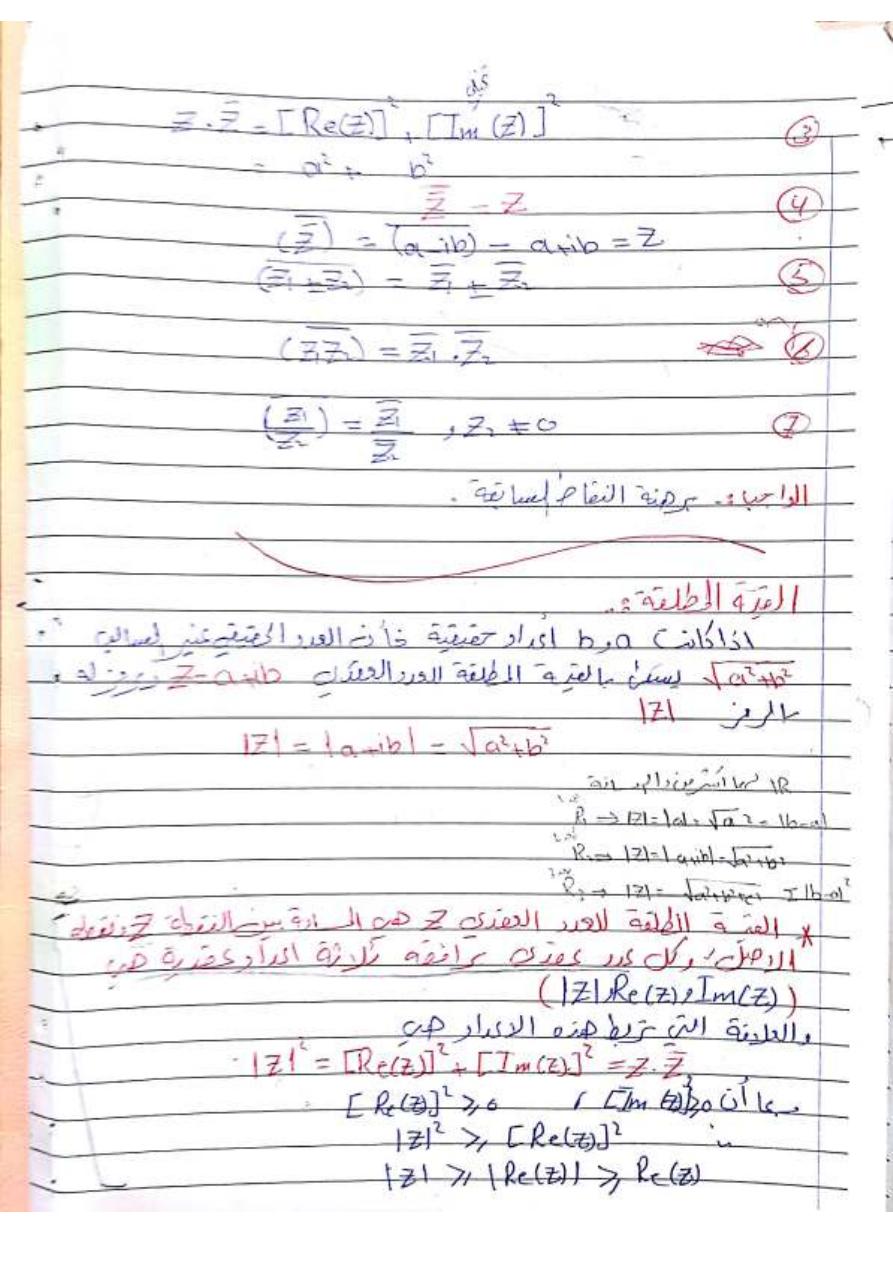 ③ Z · Z̅ = [Re(Z)]² + [Im(Z)]²
= a² + b²
④ Z̿ = Z
(Z̿) = (a-ib)‾ = a+ib = Z
⑤ (Z̅₁ ± Z̅₂)‾ = Z̿₁ ± Z̿₂
⑥ (Z₁Z₂)‾ = Z̅₁ . Z̅₂
⑦ (Z₁/Z₂)‾ = Z̅₁/Z̅₂ , Z₂ ≠ 0
الواجب :- برهنة النقاط السابقة .
القيمة المطلقة :-
اذا كانت a و b أعداد حقيقية فأن العدد الحقيقي غير السالب
√a²+b² يسمى بالقيمة المطلقة للعدد العقدي Z=a+ib ويرمز له
بالرمز |Z|
|Z| = |a+ib| = √a²+b²
R₁ → |Z|=|a|=√a² = |b-a|
R₂ → |Z|=|a+ib|=√a²+b²
R₃ → |Z|= √a²+b²+c²
* القيمة المطلقة للعدد العقدي Z هي المسافة بين النقطة Z ونقطة
الاصل، وكل عدد عقدي ترافقه ثلاثة اعداد عقدية هي
(|Z|, Re(Z), Im(Z))
والعلاقة التي تربط هذه الاعداد هي
|Z|² = [Re(Z)]² + [Im(Z)]² = Z.Z̅
بما أن [Im(Z)]²≥0 , [Re(Z)]² ≥ 0
∴ |Z|² ≥ [Re(Z)]²
|Z| ≥ |Re(Z)| ≥ Re(Z)